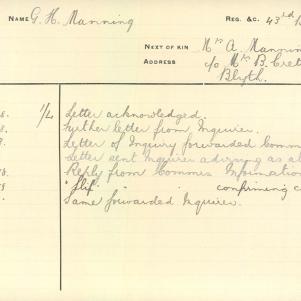 NAME G. H. Manning REG. &C. 43rd B
NEXT OF KIN Mrs A. Mannin
ADDRESS c/o Mrs B. Cret
Blyth.
8. 1/4 Letter acknowledged.
8. Further letter from Inquirer.
Letter of Inquiry forwarded Comm
Letter sent Inquirer advising as a
18. Reply from Commrs Information
"slip" " " confirming c
Same forwarded Inquirer.